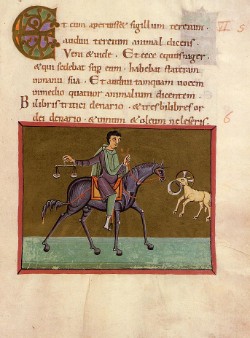 Et cum aperuisset sigillum tercium
audivi tercium animal dicens
Veni & vide. Et ecce equus niger
& qui sedebat sup eum habebat stateram
in manu sua. Et audivi tanquam vocem
in medio quatuor animalium dicentem
Bilibris tritici denario & tres bilibres or
dei denario & vinum & oleum ne leseris